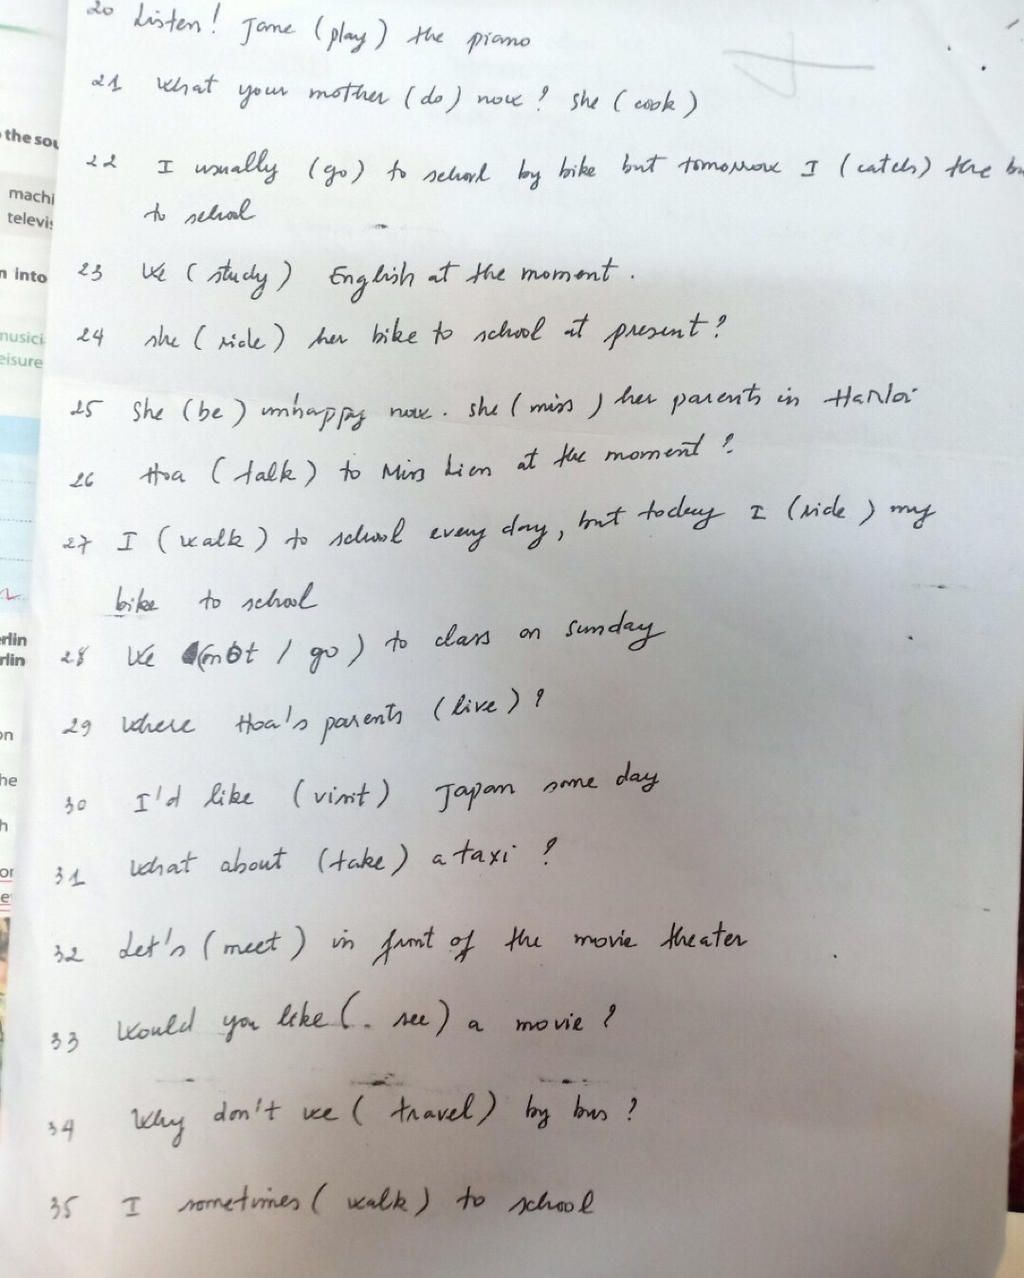 20 Listen! Jane (play) the piano
21 What your mother (do) now? she (cook)
22 I usually (go) to school by bike but tomorrow I (catch) the
to school
23 We (study) English at the moment.
24 she (ride) her bike to school at present?
25 She (be) unhappy now. she (miss) her parents in HaNoi
26 Hoa (talk) to Miss Lien at the moment?
27 I (walk) to school every day, but today I (ride) my
bike to school
28 We (not / go) to class on sunday
29 Where Hoa's parents (live)?
30 I'd like (visit) Japan some day
31 What about (take) a taxi?
32 Let's (meet) in front of the movie theater
33 Would you like (. see) a movie?
34 Why don't we (travel) by bus?
35 I sometimes (walk) to school
the sou
machi
televis
n into
musici
eisure
erlin
rlin
on
he
h
or
e